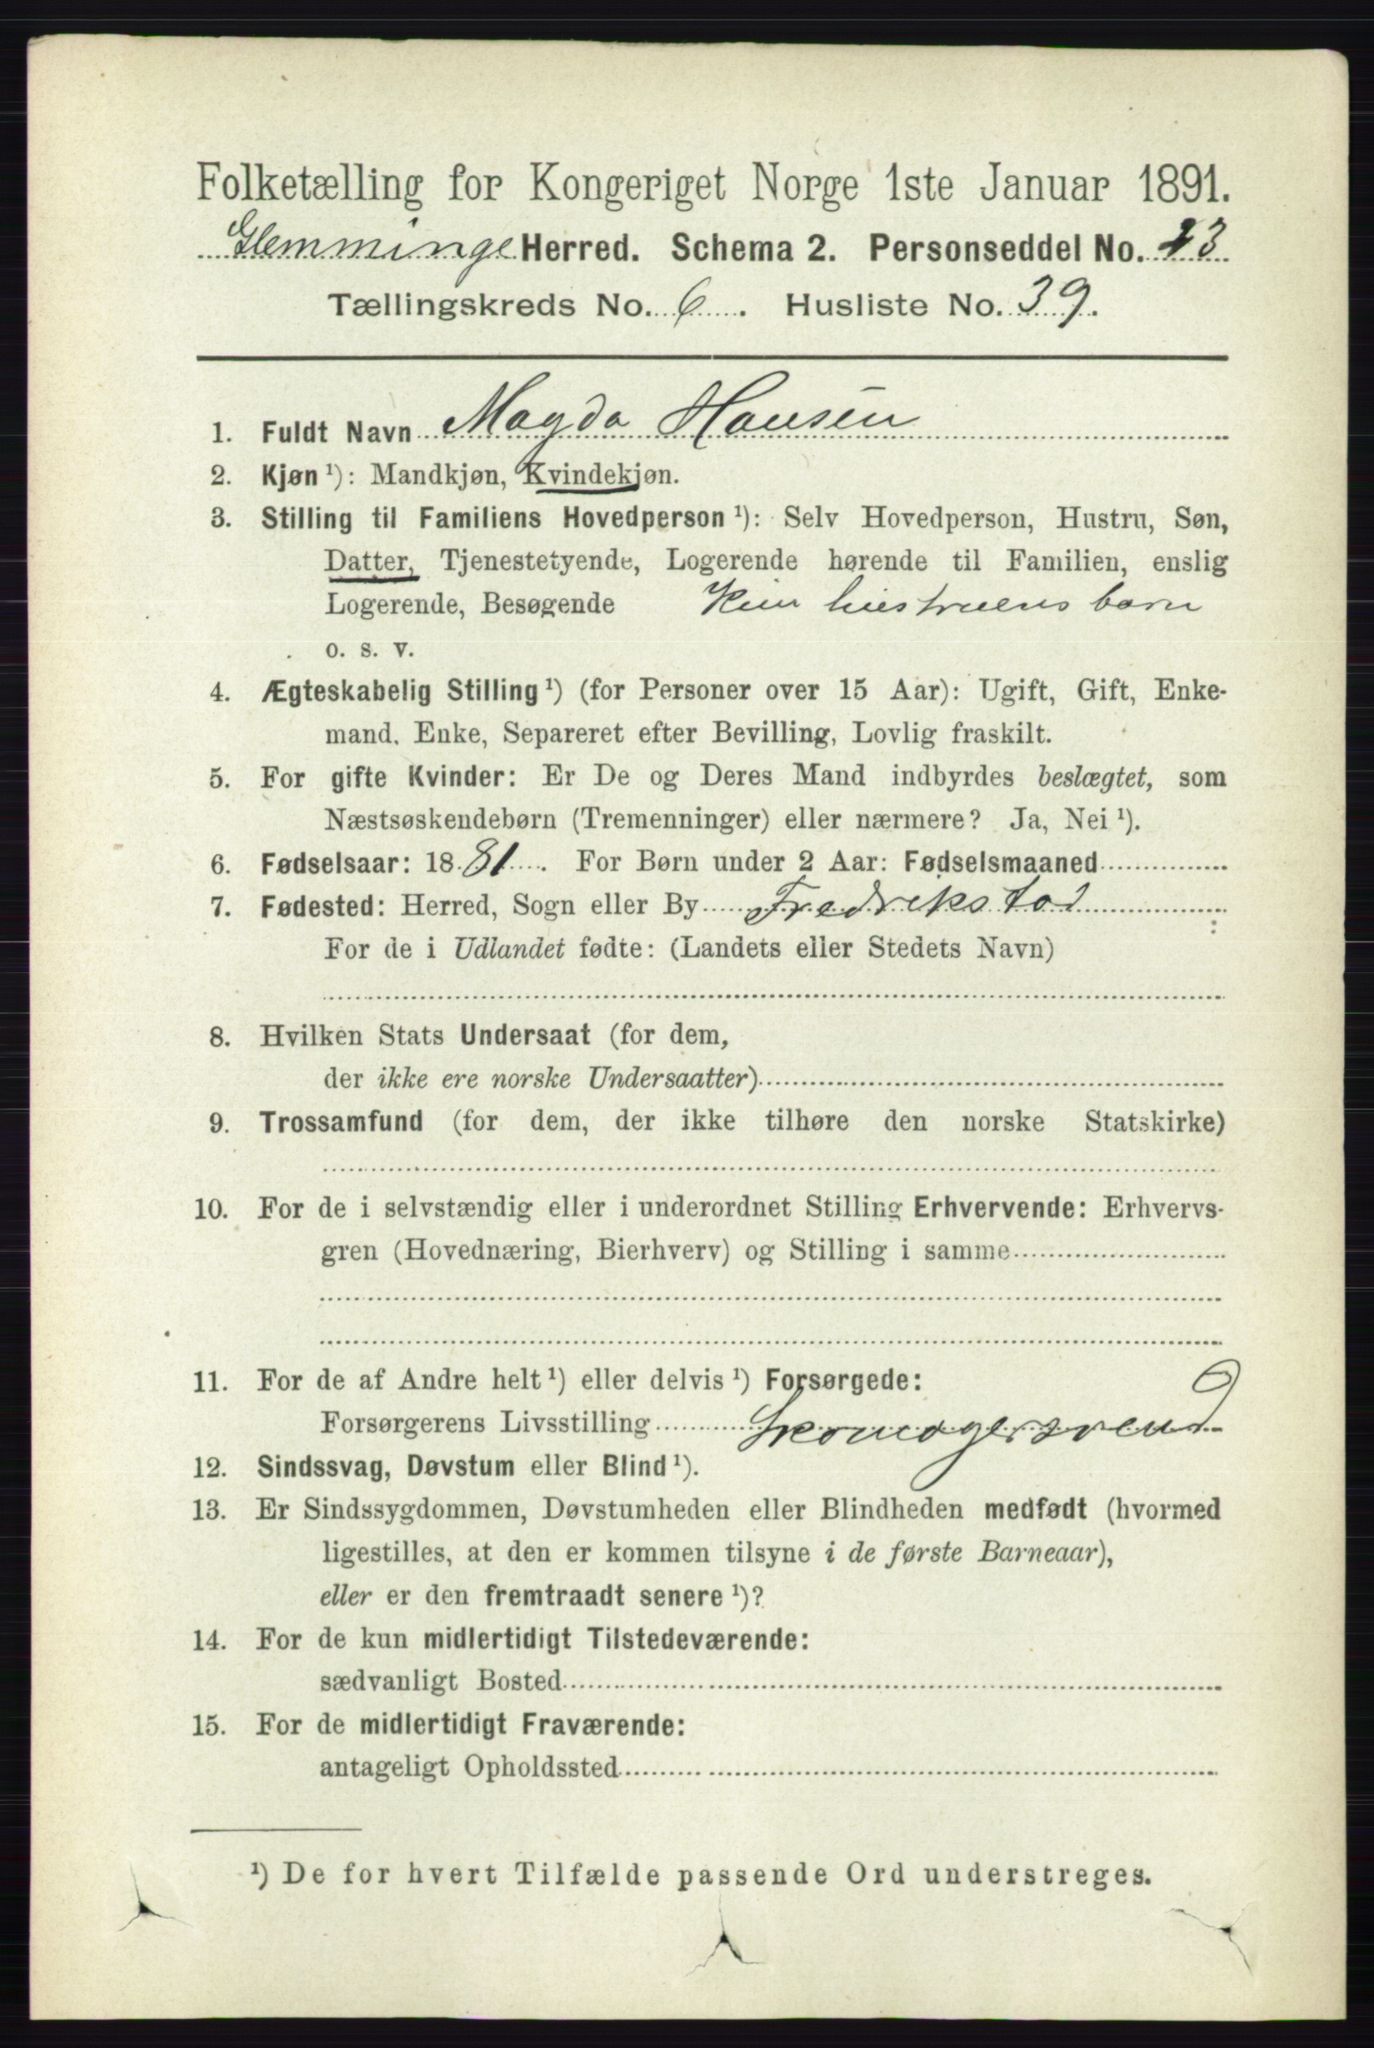 Folketælling for Kongeriget Norge 1ste Januar 1891.
Glemminge Herred. Schema 2. Personseddel No. 23
Tællingskreds No. 6. Husliste No. 39.
1. Fuldt Navn Magda Hansen
2. Kjøn ¹): Mandkjøn, Kvindekjøn.
3. Stilling til Familiens Hovedperson ¹): Selv Hovedperson, Hustru, Søn,
Datter, Tjenestetyende, Logerende hørende til Familien, enslig
Logerende, Besøgende Kun hustruens barn
o. s. v.
4. Ægteskabelig Stilling ¹) (for Personer over 15 Aar): Ugift, Gift, Enke-
mand, Enke, Separeret efter Bevilling, Lovlig fraskilt.
5. For gifte Kvinder: Er De og Deres Mand indbyrdes beslægtet, som
Næstsøskendebørn (Tremenninger) eller nærmere? Ja, Nei ¹).
6. Fødselsaar: 1881. For Børn under 2 Aar: Fødselsmaaned
7. Fødested: Herred, Sogn eller By Fredrikstad
For de i Udlandet fødte: (Landets eller Stedets Navn)
8. Hvilken Stats Undersaat (for dem,
der ikke ere norske Undersaatter)
9. Trossamfund (for dem, der ikke tilhøre den norske Statskirke)
10. For de i selvstændig eller i underordnet Stilling Erhvervende: Erhvervs-
gren (Hovednæring, Bierhverv) og Stilling i samme
11. For de af Andre helt ¹) eller delvis ¹) Forsørgede:
Forsørgerens Livsstilling Skomagersvend
12. Sindssvag, Døvstum eller Blind ¹).
13. Er Sindssygdommen, Døvstumheden eller Blindheden medfødt (hvormed
ligestilles, at den er kommen tilsyne i de første Barneaar),
eller er den fremtraadt senere ¹)?
14. For de kun midlertidigt Tilstedeværende:
sædvanligt Bosted
15. For de midlertidigt Fraværende:
antageligt Opholdssted
¹) De for hvert Tilfælde passende Ord understreges.